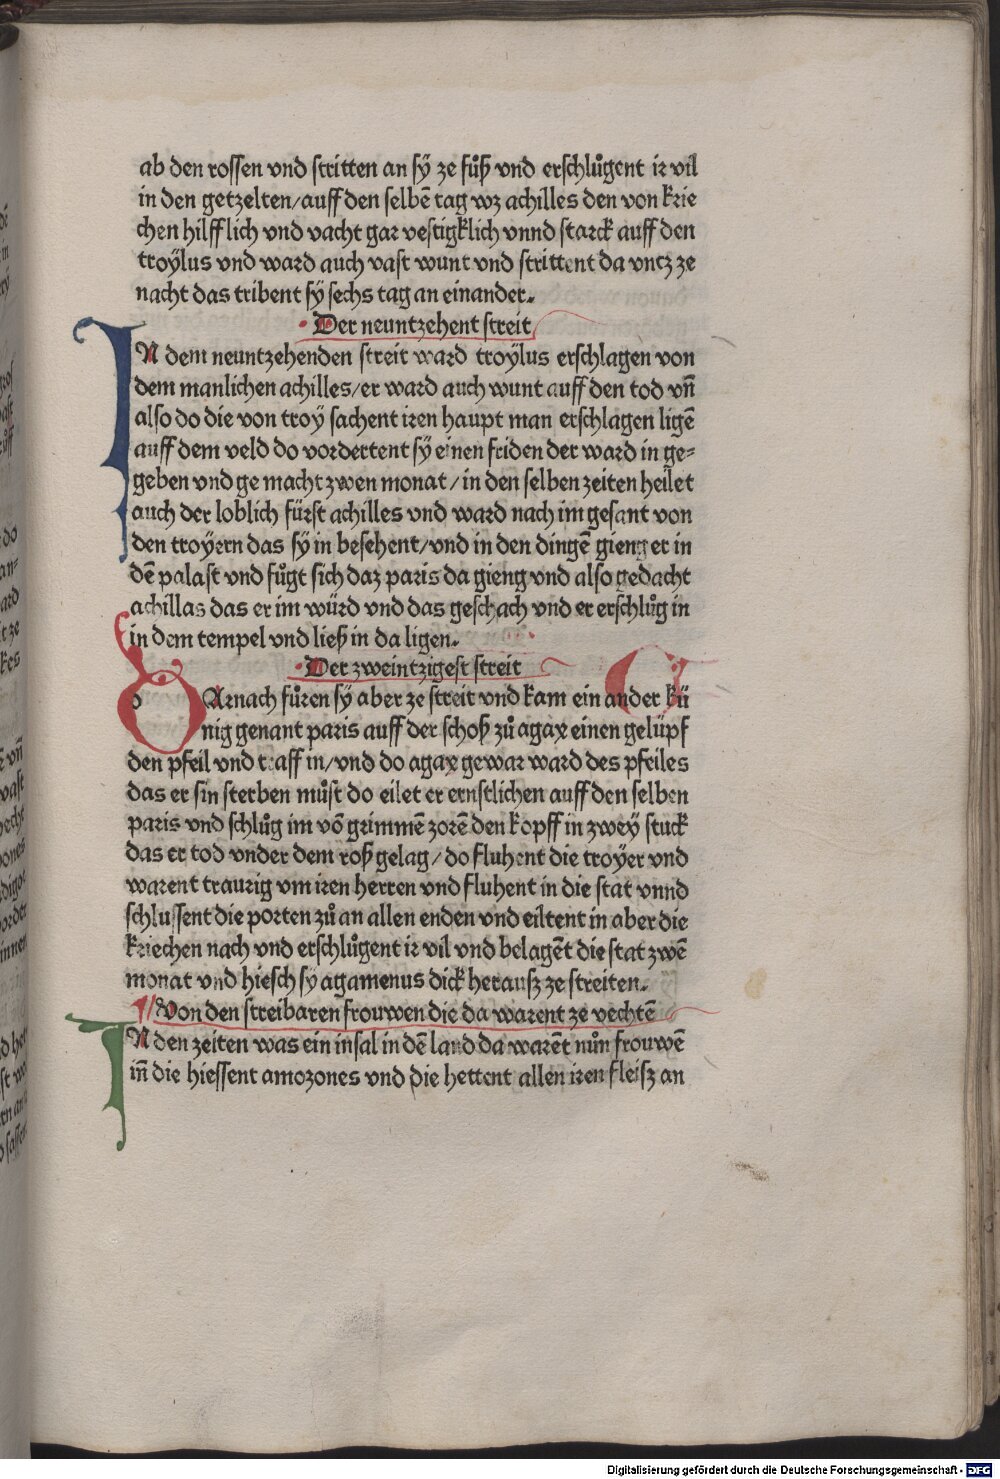 ab den rossen vnd stritten an sÿ ze fůß vnd erschlůgent ir vil
in den getzelten/auff den selbē tag wz achilles den von krie
chen hilfflich vnd vacht gar vestigklich vnnd starck auff den
troÿlus vnd ward auch vast wunt vnd strittent da vntz ze
nacht das tribent sÿ sechs tag an einander.
Der neuntzehent streit
IN dem neuntzehenden streit ward troÿlus erschlagen von
dem manlichen achilles/er ward auch wunt auff den tod vn̄
also do die von troÿ sachent iren haupt man erschlagen ligē
auff dem veld do vordertent sÿ einen friden der ward in ge⸗
geben vnd ge macht zwen monat/in den selben zeiten heilet
auch der loblich fürst achilles vnd ward nach im gesant von
den troÿern das sÿ in besehent/vnd in den dingē gieng er in
dē palast vnd fůgt sich daz paris da gieng vnd also gedacht
achillas das er im würd vnd das geschach vnd er erschlůg in
in dem tempel vnd ließ in da ligen.
Der zweintzigest streit
DArnach fůren sÿ aber ze streit vnd kam ein ander kü
nig genant paris auff der schoß zů agax einen gelüpf
den pfeil vnd traff in/vnd do agax gewar ward des pfeiles
das er sin sterben můst do eilet er ernstlichen auff den selben
paris vnd schlůg im vō grimmē zorē den kopff in zweÿ stuck
das er tod vnder dem roß gelag/do fluhent die troÿer vnd
warent traurig vm iren herren vnd fluhent in die stat vnnd
schlussent die porten zů an allen enden vnd eiltent in aber die
kriechen nach vnd erschlůgent ir vil vnd belagēt die stat zwē
monat vnd hiesch sÿ agamenus dick herausz ze streiten.
Von den streibaren frouwen die da warent ze vechtē
IN den zeiten was ein insal in dē land da warēt nůn frouwē
in̄ die hiessent amozones vnd die hettent allen iren fleisz an
Digitalisierung gefördert durch die Deutsche Forschungsgemeinschaft - DFG